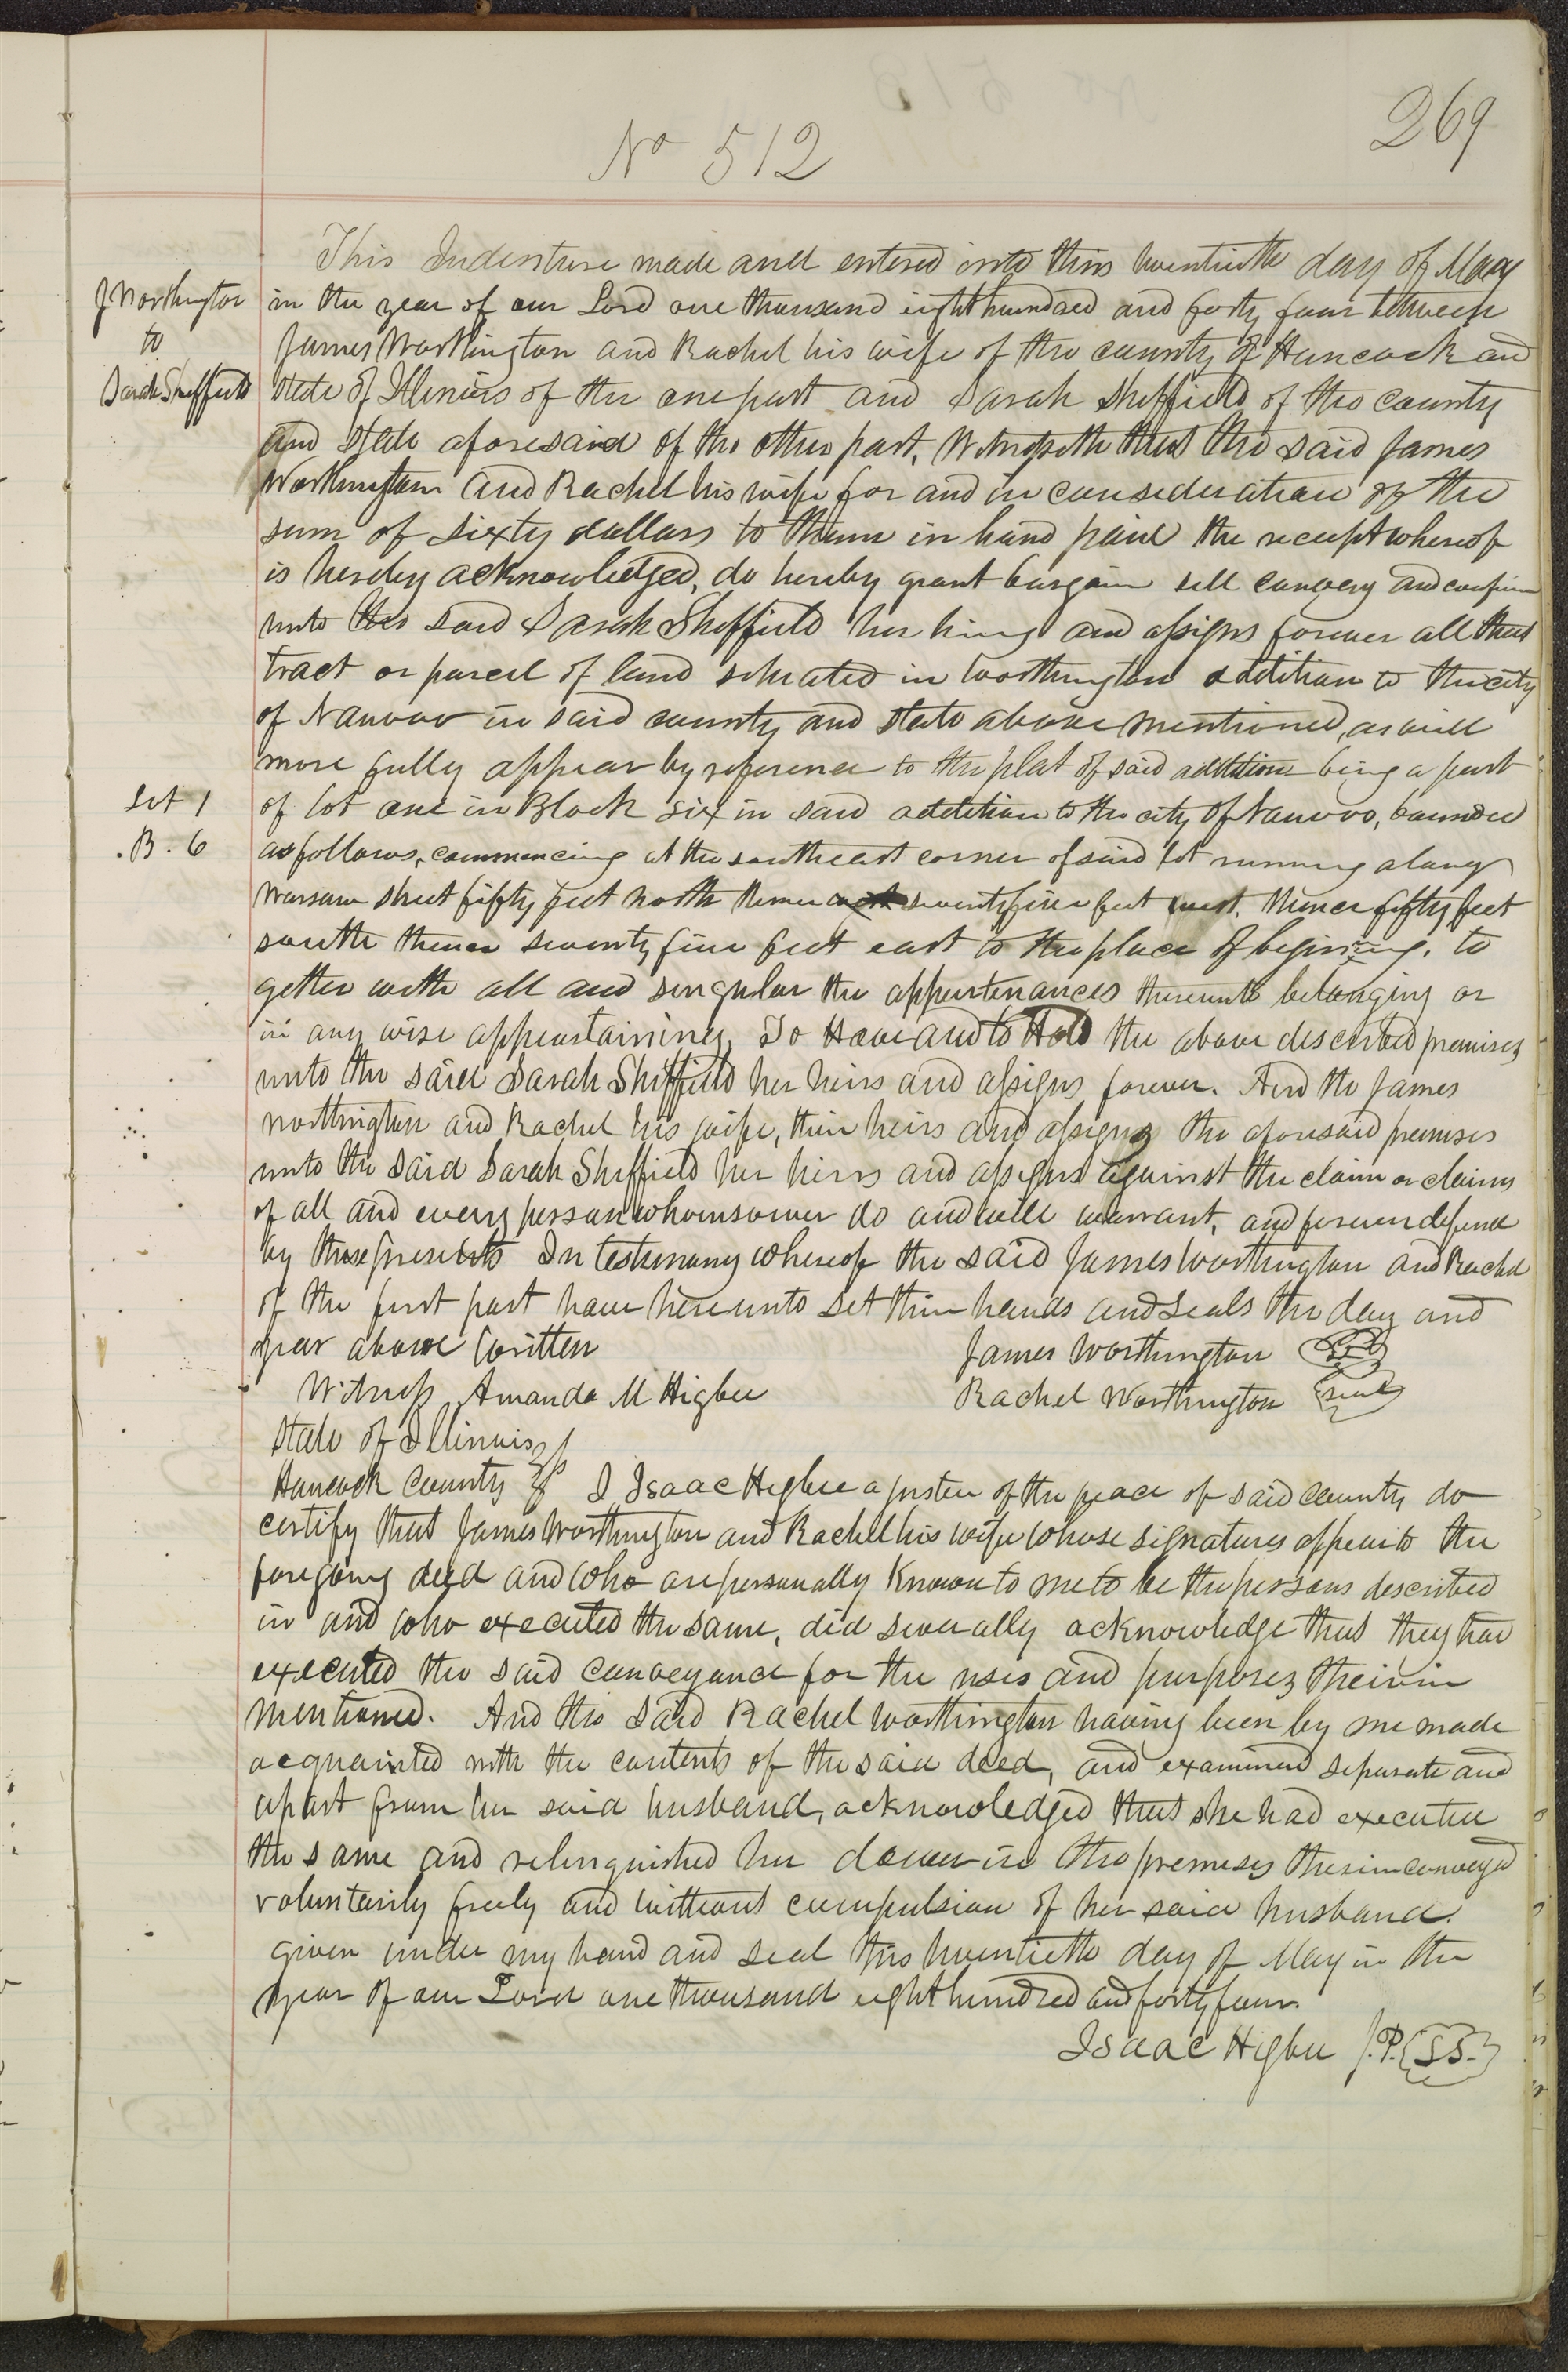 269
No 512
This Indenture made and entered into this twentieth day of May
J Worthington
to
Sarah Sheffield
in the year of our Lord one thousand eight hundred and forty four between
James Worthington and Rachel his wife of the county of Hancock and
state of Illinois of the one part and Sarah Sheffield of the county
and state aforesaid of the other part, Witnesseth that the said James
Worthington and Rachel his wife for and in consideration of the
sum of sixty dollars to them in hand paid the receipt whereof
is hereby acknowledged, do hereby grant bargain sell convey and confirm
unto the said Sarah Sheffield her heirs and assigns forever all that
tract or parcel of land situated in Worthington addition to the city
of Nauvoo in said county and state above mentioned, as will
more fully appear by reference to the plat of said addition being a part
Lot 1
B. 6
of lot one in Block six in said addition to the city of Nauvoo, bounded
as follows, commencing at the southeast corner of said lot running along
Warsaw street fifty feet north thence seventyfive feet west, thence fifty feet
south thence seventy five feet east to the place of begining, to
gether with all and singular the appertenances thereunto belonging or
in any wise appeartaining, To Have and to Hold the above described premises
unto the said Sarah Sheffield her heirs and assigns forever. And the James
Worthington and Rachel his wife, their heirs and assigns the aforesaid premises
unto the said Sarah Sheffield her heirs and assigns against the claim or claims
of all and every person whomsoever do and will warrant, and forever defend
by these presents In testimony whereof the said James Worthington and Rachel
of the first part have hereunto set their hands and seals the day and
year above written
James Worthington
Witness Amanda M Higbee
Rachel Worthington seal
State of Illinois
Hancock County ss I Isaac Higbee a justice of the peace of said county do
certify that James Worthington and Rachel his wife whose signatures appear to the
foregoing deed and who are personally known to me to be the persons described
in and who executed the same, did severally acknowledge that they had
executed the said conveyance for the uses and purposes therein
mentioned. And the said Rachel Worthington having been by me made
acquainted with the contents of the said deed, and examined separate and
apart from her said husband, acknowledged that she had executed
the same and relinquished her dower in the premises therein conveyed
voluntarily freely and without compulsion of her said husband.
given under my hand and seal this twentieth day of May in the
year of our Lord one thousand eight hundred and forty four
Isaac Higbee J.P. {SS.}